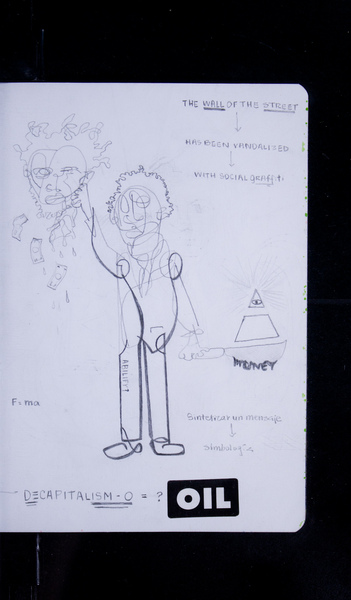 THE WALL OF THE STREET
HAS BEEN VANDALIZED
WITH SOCIAL graffiti
MONEY
ABILITY
F=ma
Sintetizar un mensaje
simbología
DECAPITALISM-O = ? OIL